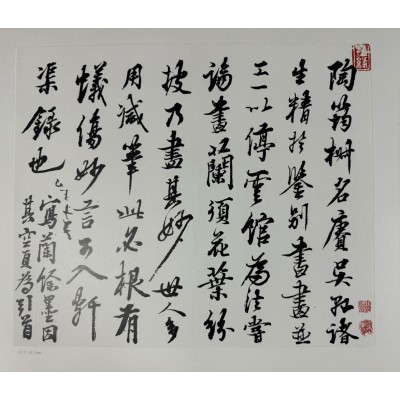 陶筠樹名賡吳孫諸
生精於鑒别書畫並
工一以停雲館為法嘗
論畫蘭須花葉紛
披乃盡其妙世人多
用減筆此必根有
蟻傷妙言可入軒
渠錄也
寫蘭餘墨因
其空頁為引首